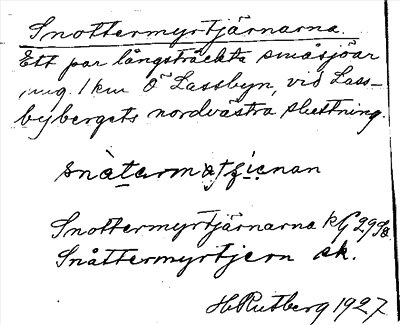 Snottermyrtjärnarna.
Ett par långsträckta småsjöar
ung. 1 km Ö Lassbyn, vid Lass-
bybergets nordvästra sluttning.
Snottermyrtjärnarna kG 29
Snåttermyrtjern ek.
H. Rutberg 1927